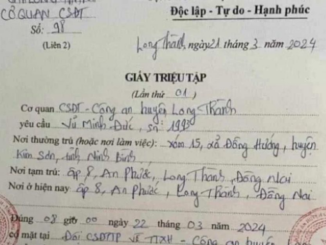 CƠ QUAN CSĐT
Độc lập - Tự do - Hạnh phúc
Số: 98
(Liên 2)
Long Thành ngày 21 tháng 3 năm 2024
GIẤY TRIỆU TẬP
(Lần thứ 01)
Cơ quan CSĐT - Công an huyện Long Thành
yêu cầu Vũ Minh Đức, sn
Nơi thường trú (hoặc nơi làm việc): xóm 15, xã Đồng Hướng, huyện
Kim Sơn, tỉnh Ninh Bình
Nơi tạm trú: ấp 8, An Phước, Long Thành, Đồng Nai
Nơi ở hiện nay ấp 8, An Phước, Long Thành, Đồng Nai
Đúng 08 giờ 00 ngày 22 tháng 03 năm 2024
có mặt tại Đội CSĐTTP về TTXH - Công an huyện